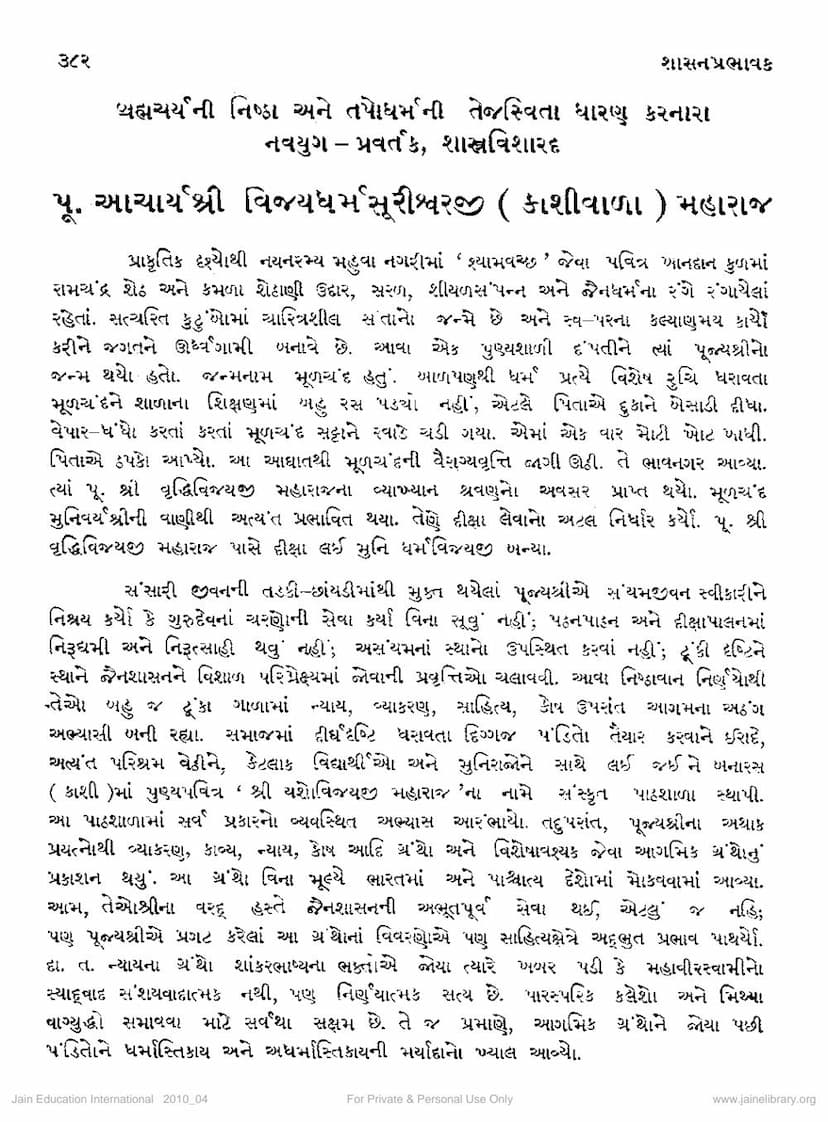 ૩૮૨
શાસનપ્રભાવક
બ્રહ્મચર્યની નિષ્ઠા અને તપોધર્મની તેજસ્વિતા ધારણ કરનારા
નવયુગ – પ્રવર્તક, શાસ્ત્રવિશારદ
પૂ. આચાર્યશ્રી વિજયધર્મસૂરીશ્વરજી ( કાશીવાળા ) મહારાજ
પ્રાકૃતિક દૃશ્યોથી નયનરમ્ય મહુવા નગરીમાં ‘ શ્યામવચ્છ ’ જેવા પવિત્ર ખાનદાન કુળમાં
રામચંદ્ર શેઠ અને કમળા શેઠાણી ઉદાર, સરળ, શીયળસંપન્ન અને જૈનધર્મના રંગે રંગાયેલાં
રહેતાં. સત્ચરિત કુટુંબોમાં ચારિત્રશીલ સંતાનો જન્મે છે અને સ્વ–પરના કલ્યાણમય કાર્યો
કરીને જગતને ઊર્ધ્વગામી બનાવે છે. આવા એક પુણ્યશાળી દંપતીને ત્યાં પૂજ્યશ્રીનો
જન્મ થયો હતો. જન્મનામ મૂળચંદ હતું. બાળપણથી ધર્મ પ્રત્યે વિશેષ રુચિ ધરાવતા
મૂળચંદને શાળાના શિક્ષણમાં બહુ રસ પડ્યો નહીં, એટલે પિતાએ દુકાને બેસાડી દીધા.
વેપાર–ધંધો કરતાં કરતાં મૂળચંદ સટ્ટાને રવાડે ચડી ગયા. એમાં એક વાર મોટી ખોટ ખાધી.
પિતાએ ઠપકો આપ્યો. આ આઘાતથી મૂળચંદની વૈરાગ્યવૃત્તિ જાગી ઊઠી. તે ભાવનગર આવ્યા.
ત્યાં પૂ. શ્રી વૃદ્ધિવિજયજી મહારાજના વ્યાખ્યાન શ્રવણનો અવસર પ્રાપ્ત થયો. મૂળચંદ
મુનિવર્યશ્રીની વાણીથી અત્યંત પ્રભાવિત થયા. તેણે દીક્ષા લેવાનો અટલ નિર્ધાર કર્યો. પૂ. શ્રી
વૃદ્ધિવિજયજી મહારાજ પાસે દીક્ષા લઈ મુનિ ધર્મવિજયજી બન્યા.
સંસારી જીવનની તડકી–છાંયડીમાંથી મુક્ત થયેલાં પૂજ્યશ્રીએ સંયમજીવન સ્વીકારીને
નિશ્ચય કર્યો કે ગુરુદેવનાં ચરણોની સેવા કર્યા વિના સૂવું નહીં; પઠનપાઠન અને દીક્ષાપાલનમાં
નિરૂદ્યમી અને નિરૂત્સાહી થવું નહીં; અસંયમનાં સ્થાનો ઉપસ્થિત કરવાં નહીં; ટૂંકી દૃષ્ટિને
સ્થાને જૈનશાસનને વિશાળ પરિપ્રેક્ષ્યમાં જોવાની પ્રવૃત્તિઓ ચલાવવી. આવા નિષ્ઠાવાન નિર્ણયોથી
તેઓ બહુ જ ટૂંકા ગાળામાં ન્યાય, વ્યાકરણ, સાહિત્ય, કોષ ઉપરાંત આગમના અઠંગ
અભ્યાસી બની રહ્યા. સમાજમાં દીર્ઘદૃષ્ટિ ધરાવતા દિગ્ગજ પંડિતો તૈયાર કરવાને ઈરાદે,
અત્યંત પરિશ્રમ વેઠીને, કેટલાક વિદ્યાર્થીઓ અને મુનિરાજોને સાથે લઈ જઈને બનારસ
( કાશી )માં પુણ્યપવિત્ર ‘ શ્રી યશોવિજયજી મહારાજ ’ના નામે સંસ્કૃત પાઠશાળા સ્થાપી.
આ પાઠશાળામાં સર્વ પ્રકારનો વ્યવસ્થિત અભ્યાસ આરંભાયો. તદુપરાંત, પૂજ્યશ્રીના અથાક
પ્રયત્નોથી વ્યાકરણ, કાવ્ય, ન્યાય, કોષ આદિ ગ્રંથો અને વિશેષાવશ્યક જેવા આગમિક ગ્રંથોનું
પ્રકાશન થયું. આ ગ્રંથો વિના મૂલ્યે ભારતમાં અને પાશ્ચાત્ય દેશોમાં મોકલવામાં આવ્યા.
આમ, તેઓશ્રીના વરદ્ હસ્તે જૈનશાસનની અભૂતપૂર્વ સેવા થઈ, એટલું જ નહિ;
પણ પૂજ્યશ્રીએ પ્રગટ કરેલાં આ ગ્રંથોનાં વિવરણોએ પણ સાહિત્યક્ષેત્રે અદ્ભુત પ્રભાવ પાથર્યો.
દા. ત. ન્યાયના ગ્રંથો શાંકરભાષ્યના ભક્તોએ જોયા ત્યારે ખબર પડી કે મહાવીરસ્વામીનો
સ્યાદ્વાદ સંશયવાદાત્મક નથી, પણ નિર્ણયાત્મક સત્ય છે. પારસ્પરિક કલેશો અને મિથ્યા
વાગ્યુદ્ધો સમાવવા માટે સર્વથા સક્ષમ છે. તે જ પ્રમાણે, આગમિક ગ્રંથોને જોયા પછી
પંડિતોને ધર્માસ્તિકાય અને અધર્માસ્તિકાયની મર્યાદાનો ખ્યાલ આવ્યો.
Jain Education International 2010_04
For Private & Personal Use Only
www.jainelibrary.org